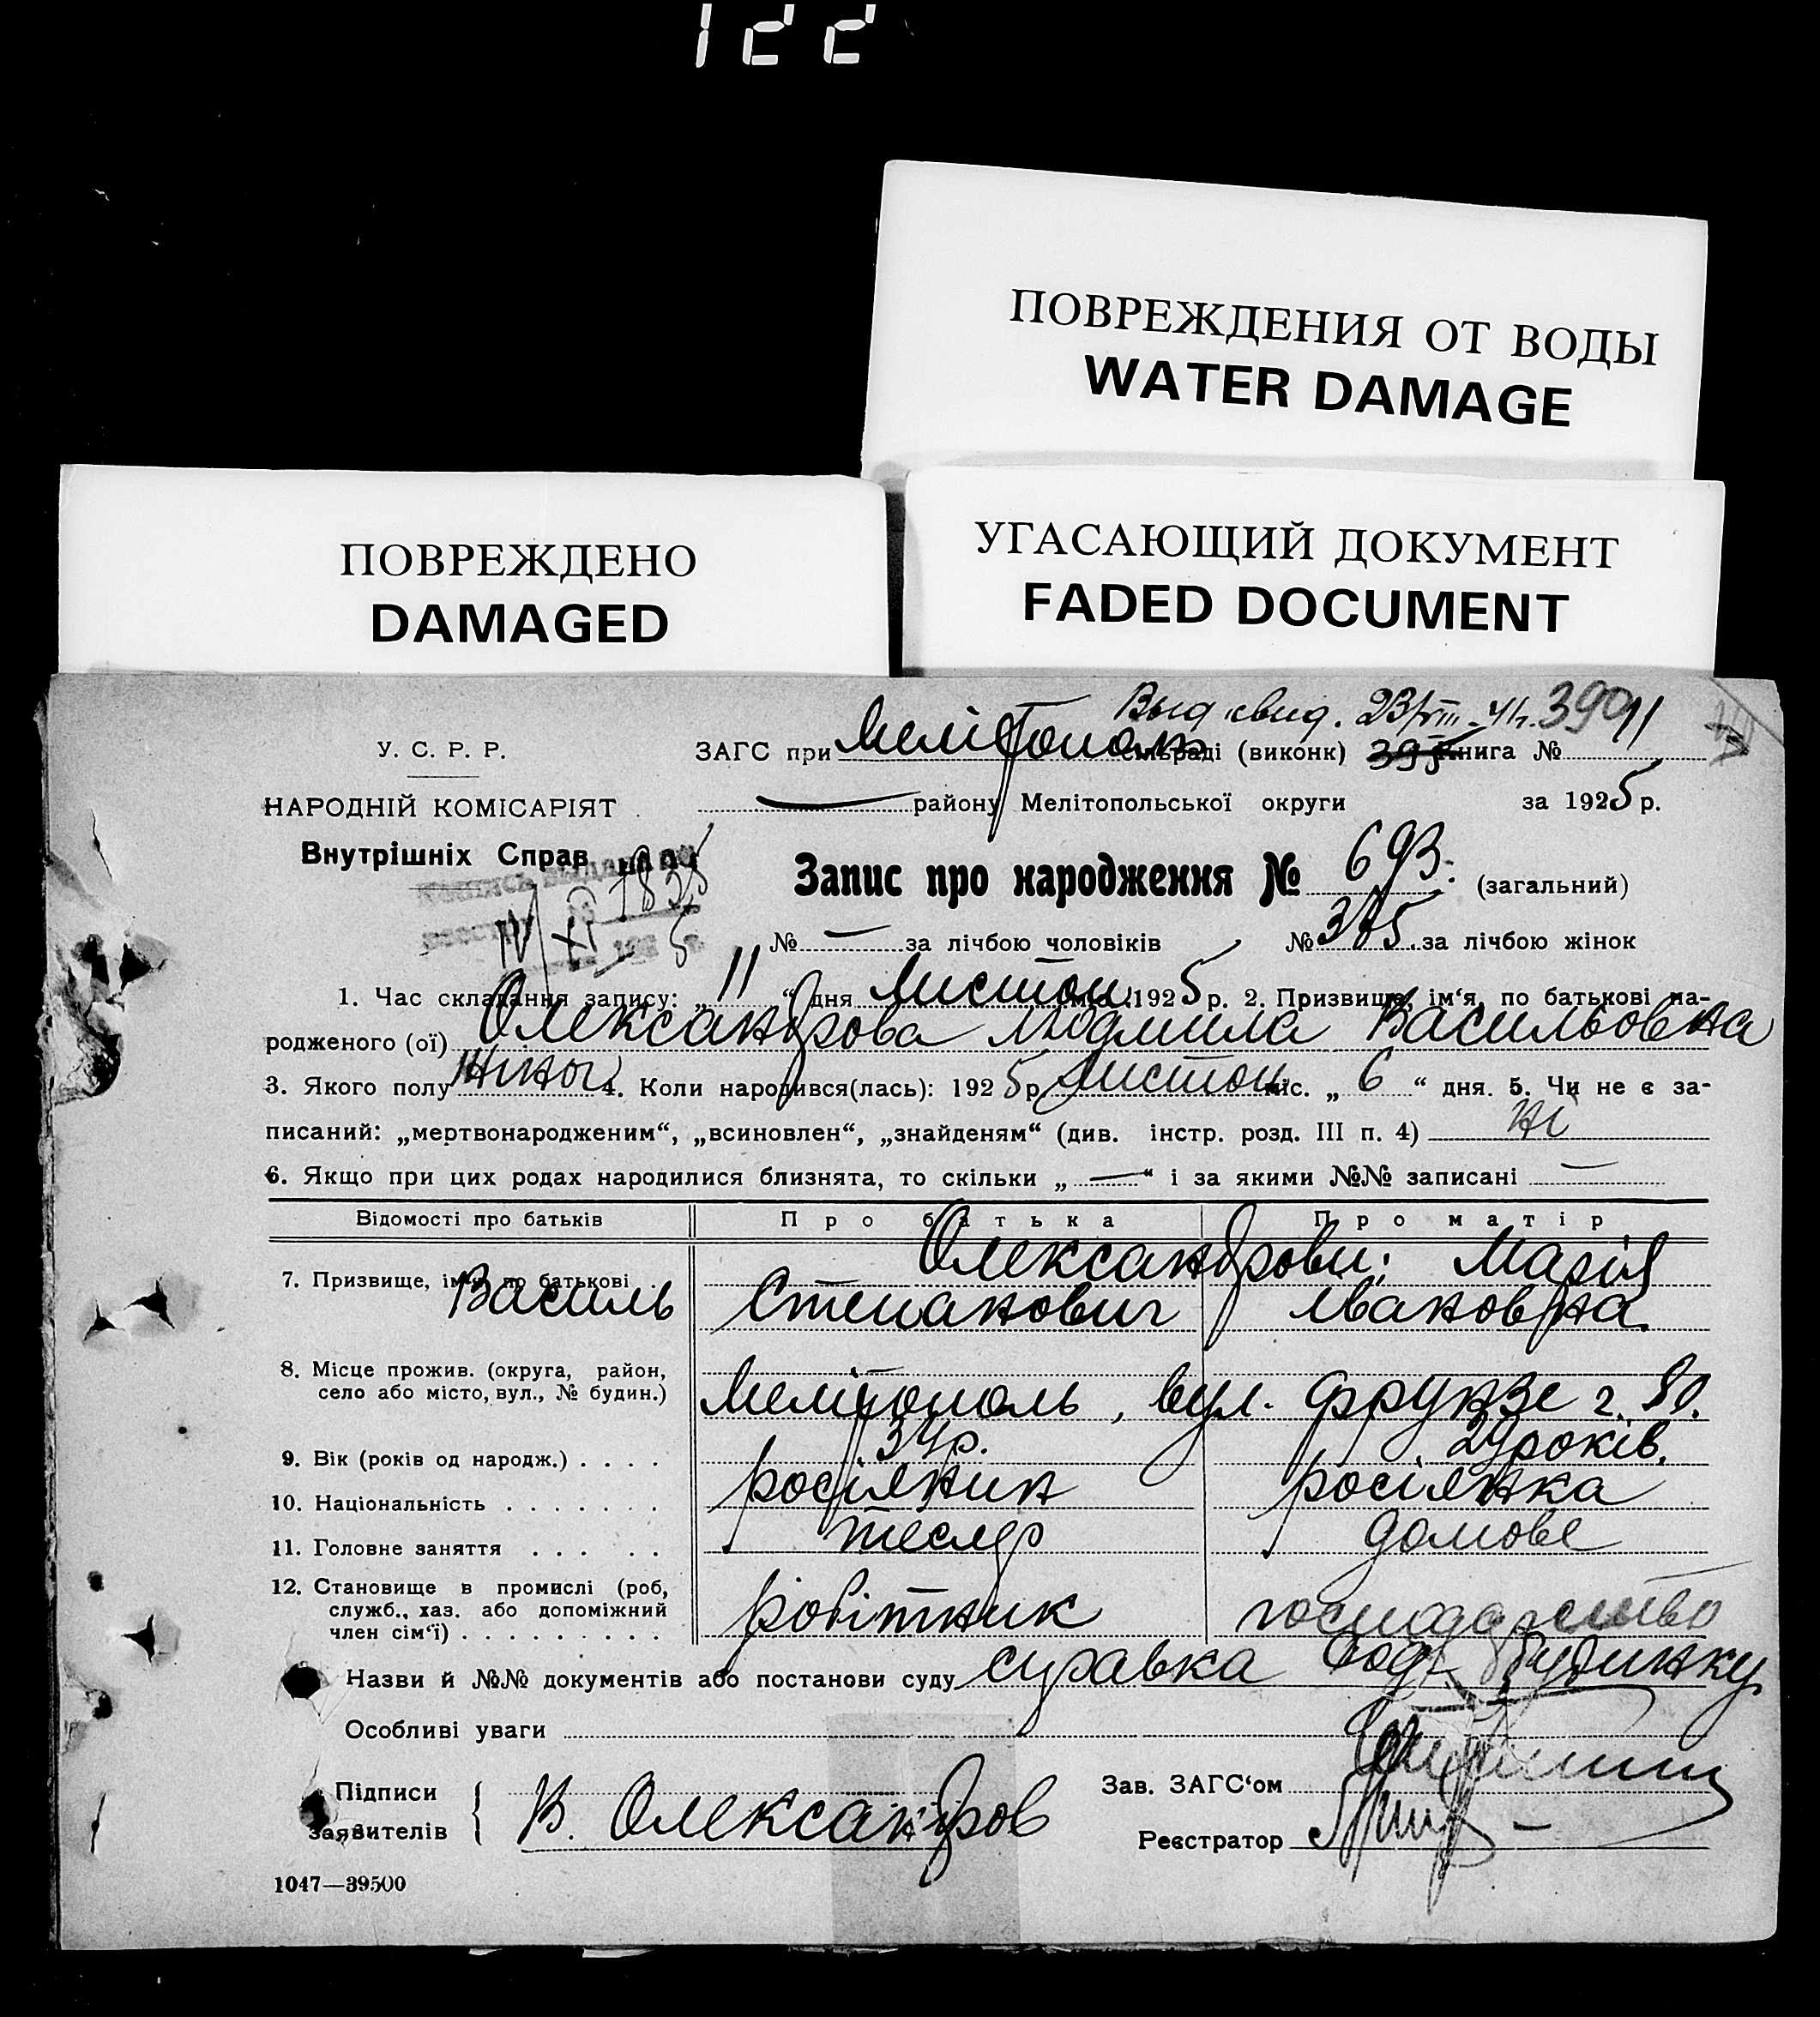 122
ПОВРЕЖДЕНИЯ ОТ ВОДЫ
WATER DAMAGE
ПОВРЕЖДЕНО
DAMAGED
УГАСАЮЩИЙ ДОКУМЕНТ
FADED DOCUMENT
Выд свид. 23/VIII-41г. 390
У. С. Р. Р.
ЗАГС при Мелітополь сільраді (виконк) 395 Книга № 11
НАРОДНІЙ КОМІСАРІЯТ
— району Мелітопольської округи за 1925 р.
Внутрішніх Справ
Запис про народження № 693. (загальний)
№ — за лічбою чоловіків № 375. за лічбою жінок
1. Час складання запису: „11“ дня Листоп. міс. 1925 р. 2. Призвище, ім‘я, по батькові на-
родженого (ої) Олександрова Людмила Васильовна
3. Якого полу жіноч 4. Коли народився(лась): 1925 р. Листоп. міс. „6“ дня. 5. Чи не є за-
писаний: „мертвонародженим“, „всиновлен“, „знайденям“ (див. інстр. розд. III п. 4) ні
6. Якщо при цих родах народилися близнята, то скільки „—“ і за якими №№ записані —
Відомості про батьків Про батька Про матір
7. Призвище, ім‘я, по батькові Олександрови: Марія
Василь Степанович Івановна
8. Місце прожив. (округа, район,
село або місто, вул., № будин.) Мелітополь, вул. Фрунзе 2. 80.
9. Вік (років од народж.) . . . . 34р. 29 років.
10. Національність . . . . . . . росіянин росіянка
11. Головне заняття . . . . . тесляр домове
12. Становище в промислі (роб,
служб., хаз. або допоміжний
член сім‘ї) . . . . . . . . . робітник господарство
Назви й №№ документів або постанови суду справка Род. будинку
Особливі уваги
Підписи
заявителів { В. Олександров
Зав. ЗАГС‘ом
Реєстратор
1047—39500